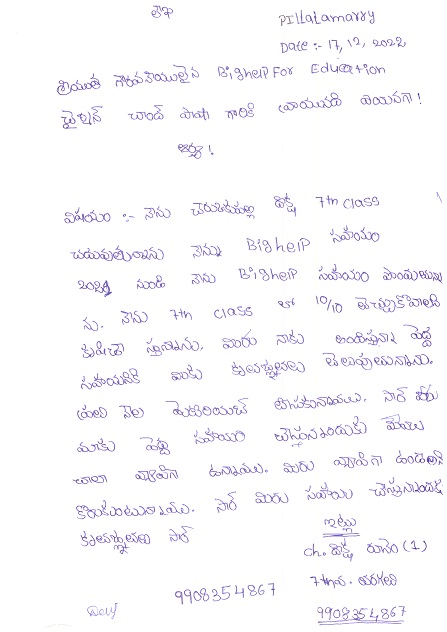 లేఖ
Pillalamarry
Date :- 17, 12, 2022
శ్రీయుత గౌరవనీయులైన Bighelp For Education
ఛైర్మన్ చాంద్ పాషా గారికి వ్రాయునది ఏమనగా!
ఆర్యా!
విషయం :- నేను చెరుకుపల్లి దీక్ష 7th class
చదువుతున్నాను నేను Bighelp సహాయం
2021 నుండి నేను Bighelp సహాయం పొందుతున్నా
ను. నేను 7th class లో 10/10 తెచ్చుకోవాలని
కృషి చేస్తున్నాను. మీరు నాకు అందిస్తున్న పెద్ద
సహాయానికి మీకు కృతజ్ఞతలు తెలుపుతున్నాను.
ప్రతి నెల మెటీరియల్ తీసుకున్నాము. సార్ మీరు
మాకు పెద్ద సహాయం చేస్తున్నందుకు మేము
చాలా హ్యాపీగా ఉన్నాము. మీరు హ్యాపీగా ఉండాలని
కోరుకుంటున్నాము. సార్ మీరు సహాయం చేస్తున్నందుకు
కృతజ్ఞతలు సార్
ఇట్లు
ch. దీక్ష రూనెం (1)
7వ త.
9908354867
9908354867